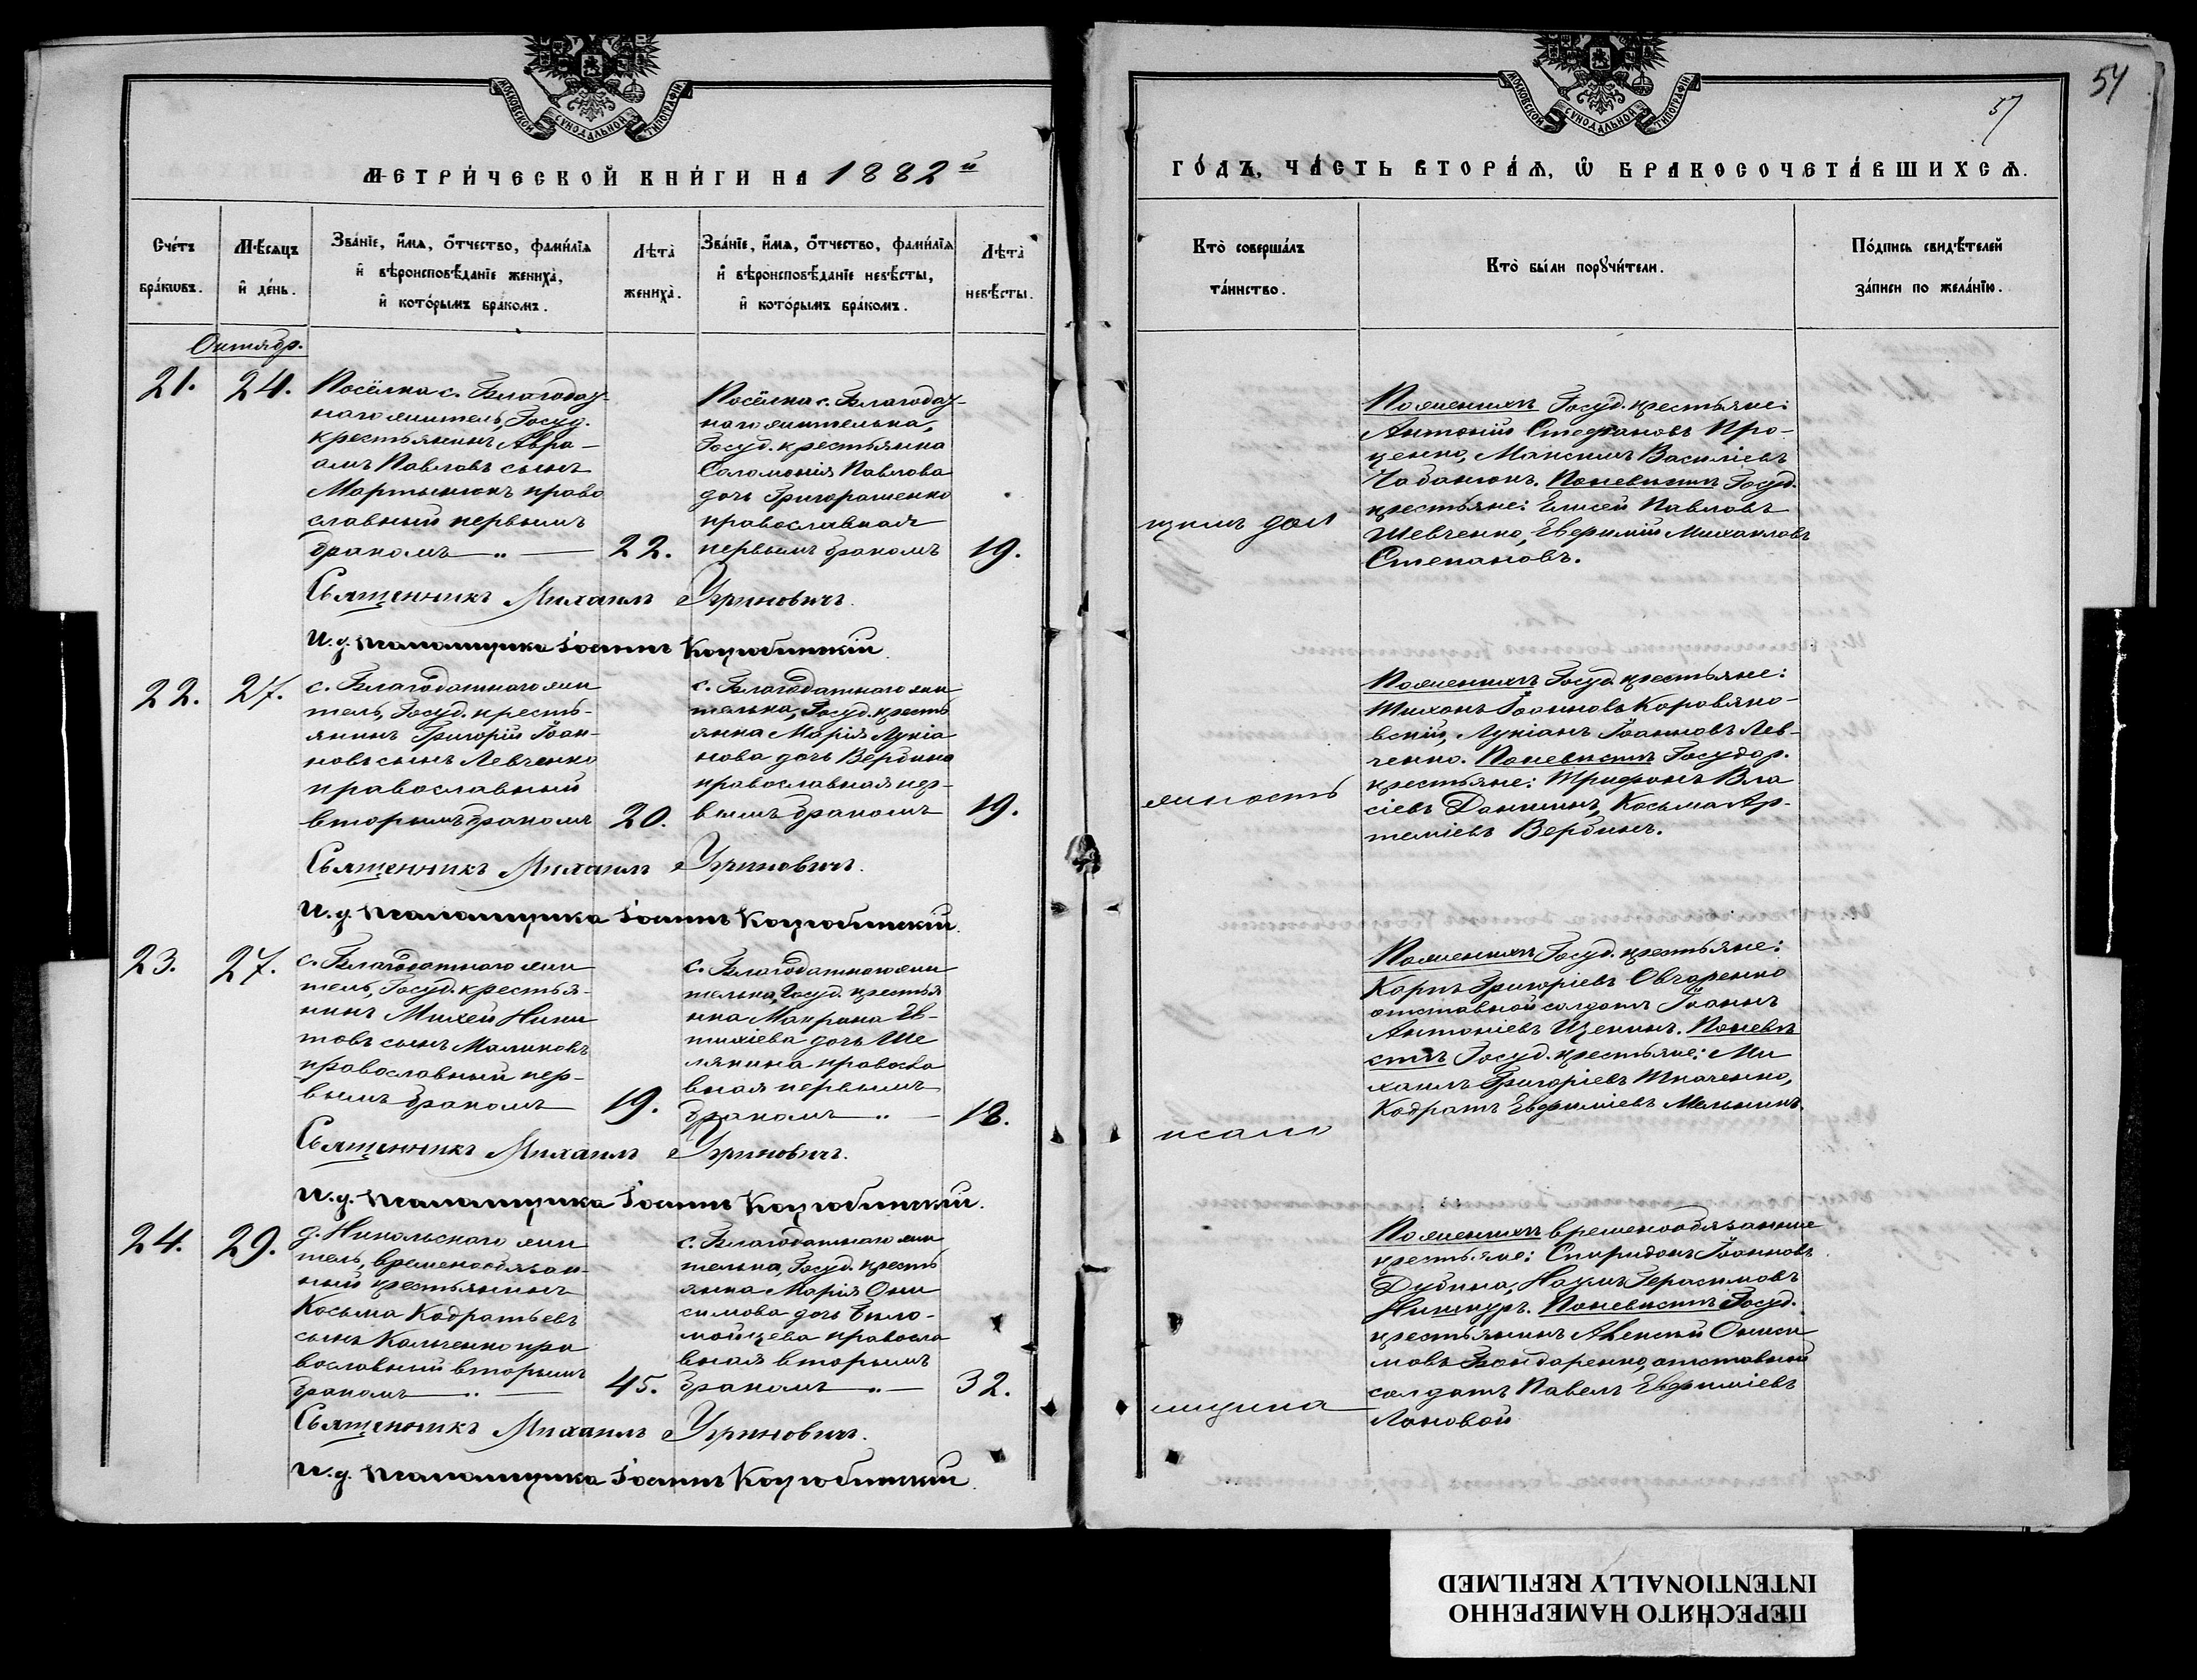 МОСКОВСКОЙ СѴНОДАЛЬНОЙ ТИПОГРАФІИ
МЕТРИ́ЧЕСКОЙ КНИ́ГИ НА 1882й
Сче́тъ бра́кωвъ.
Мѣ́сяцъ и҆ де́нь.
Зва́нїе, и҆́мѧ, ѻ҆́тчество, фами́лїѧ
и҆ вѣроисповѣ́данїе жениха̀,
и҆ кото́рымъ бра́комъ.
Лѣта̀ жениха̀.
Зва́нїе, и҆́мѧ, ѻ҆́тчество, фами́лїѧ
и҆ вѣроисповѣ́данїе невѣ́сты,
и҆ кото́рымъ бра́комъ.
Лѣта̀ невѣ́сты.
Октябр.
21.
24.
Посёлка с. Благодат-
наго житель, Госуд.
крестьянинъ Авра-
амъ Павловъ сынъ
Мартынюкъ право
славный первымъ
бракомъ „ —
22.
Посёлка с. Благодат-
наго жителька,
Госуд. крестьянка
Саломонія Павлова
дочь Григорашенко
православная
первымъ бракомъ
19.
Священникъ Михаилъ Угриновичъ.
И. д. псаломщика Іоаннъ Коцюбинскій.
22.
27.
с. Благодатнаго жи
тель, Госуд. кресть-
янинъ Григорій Іоан-
новъ сынъ Левченко
православный
вторымъ бракомъ
20.
с. Благодатнаго жи
телька, Госуд. кресть
янка Марія Лукіа
нова дочь Вербина
православная пер-
вымъ бракомъ
19.
Священникъ Михаилъ Угриновичъ.
И. д. псаломщика Іоаннъ Коцюбинскій.
23.
27.
с. Благодатнаго жи
тель, Госуд. крестья-
нинъ Михей Ники
товъ сынъ Малиновъ
православный пер-
вымъ бракомъ
19.
с. Благодатнаго жи
телька, Госуд. крестья
нка Макрина Ев-
тихіева дочь Ше
лякина правосла
вная первымъ
бракомъ „ —
18.
Священникъ Михаилъ Угриновичъ.
И. д. псаломщика Іоаннъ Коцюбинскій.
24.
29.
д. Никольскаго жи
тель, временообязан-
ный крестьянинъ
Косьма Кодратьевъ
сынъ Калченко пра
вославный вторымъ
бракомъ „ —
45.
с. Благодатнаго жи
телька, Госуд. кресть
янка Марія Они
симова дочь Било-
мойцева правосла
вная вторымъ
бракомъ „ —
32.
Священникъ Михаилъ Угриновичъ.
И. д. псаломщика Іоаннъ Коцюбинскій.
54
57
МОСКОВСКОЙ СѴНОДАЛЬНОЙ ТИПОГРАФІИ
ГО́ДЪ, ЧА́СТЬ ВТОРА́Ѧ, Ѽ БРАКОСОЧЕТА́ВШИХСѦ.
Кто̀ соверша́лъ та́инство.
Кто̀ бы́ли порꙋчи́тели.
По́дпись свидѣ́телей за́писи по жела́нїю.
щимъ дол
По жениху Госуд. крестьяне:
Антоній Стефановъ Про-
ценко, Максимъ Василіевъ
Чабанюкъ. По невѣстѣ Госуд.
крестьяне: Елисей Павловъ
Шевченко, Евфимій Михаиловъ
Степановъ.
жность
По жениху Госуд. крестьяне:
Тихонъ Іоанновъ Коровяко-
вскій, Лукіанъ Іоанновъ Лев-
ченко. По невѣстѣ Государ.
крестьяне: Трифонъ Вла
сіевъ Данкинъ, Косьма Ар-
теміевъ Вербинъ.
псало
По жениху Госуд. крестьяне:
Карпъ Григоріевъ Овчаренко
отставной солдатъ Іоаннъ
Антоніевъ Щекинъ. По невѣ
стѣ Госуд. крестьяне: Ми
хаилъ Григоріевъ Ткаченко,
Кодратъ Евфиміевъ Малыкинъ.
мщика
По жениху временообязанные
крестьяне: Спиридонъ Іоанновъ
Дубина, Наумъ Герасимовъ
Нишкуръ. По невѣстѣ Госуд.
крестьянинъ Алексій Ониси
мовъ Бондаренко, отставной
солдатъ Павелъ Евфиміевъ
Лановой
ПЕРЕСНЯТО НАМЕРЕННО
INTENTIONALLY REFILMED